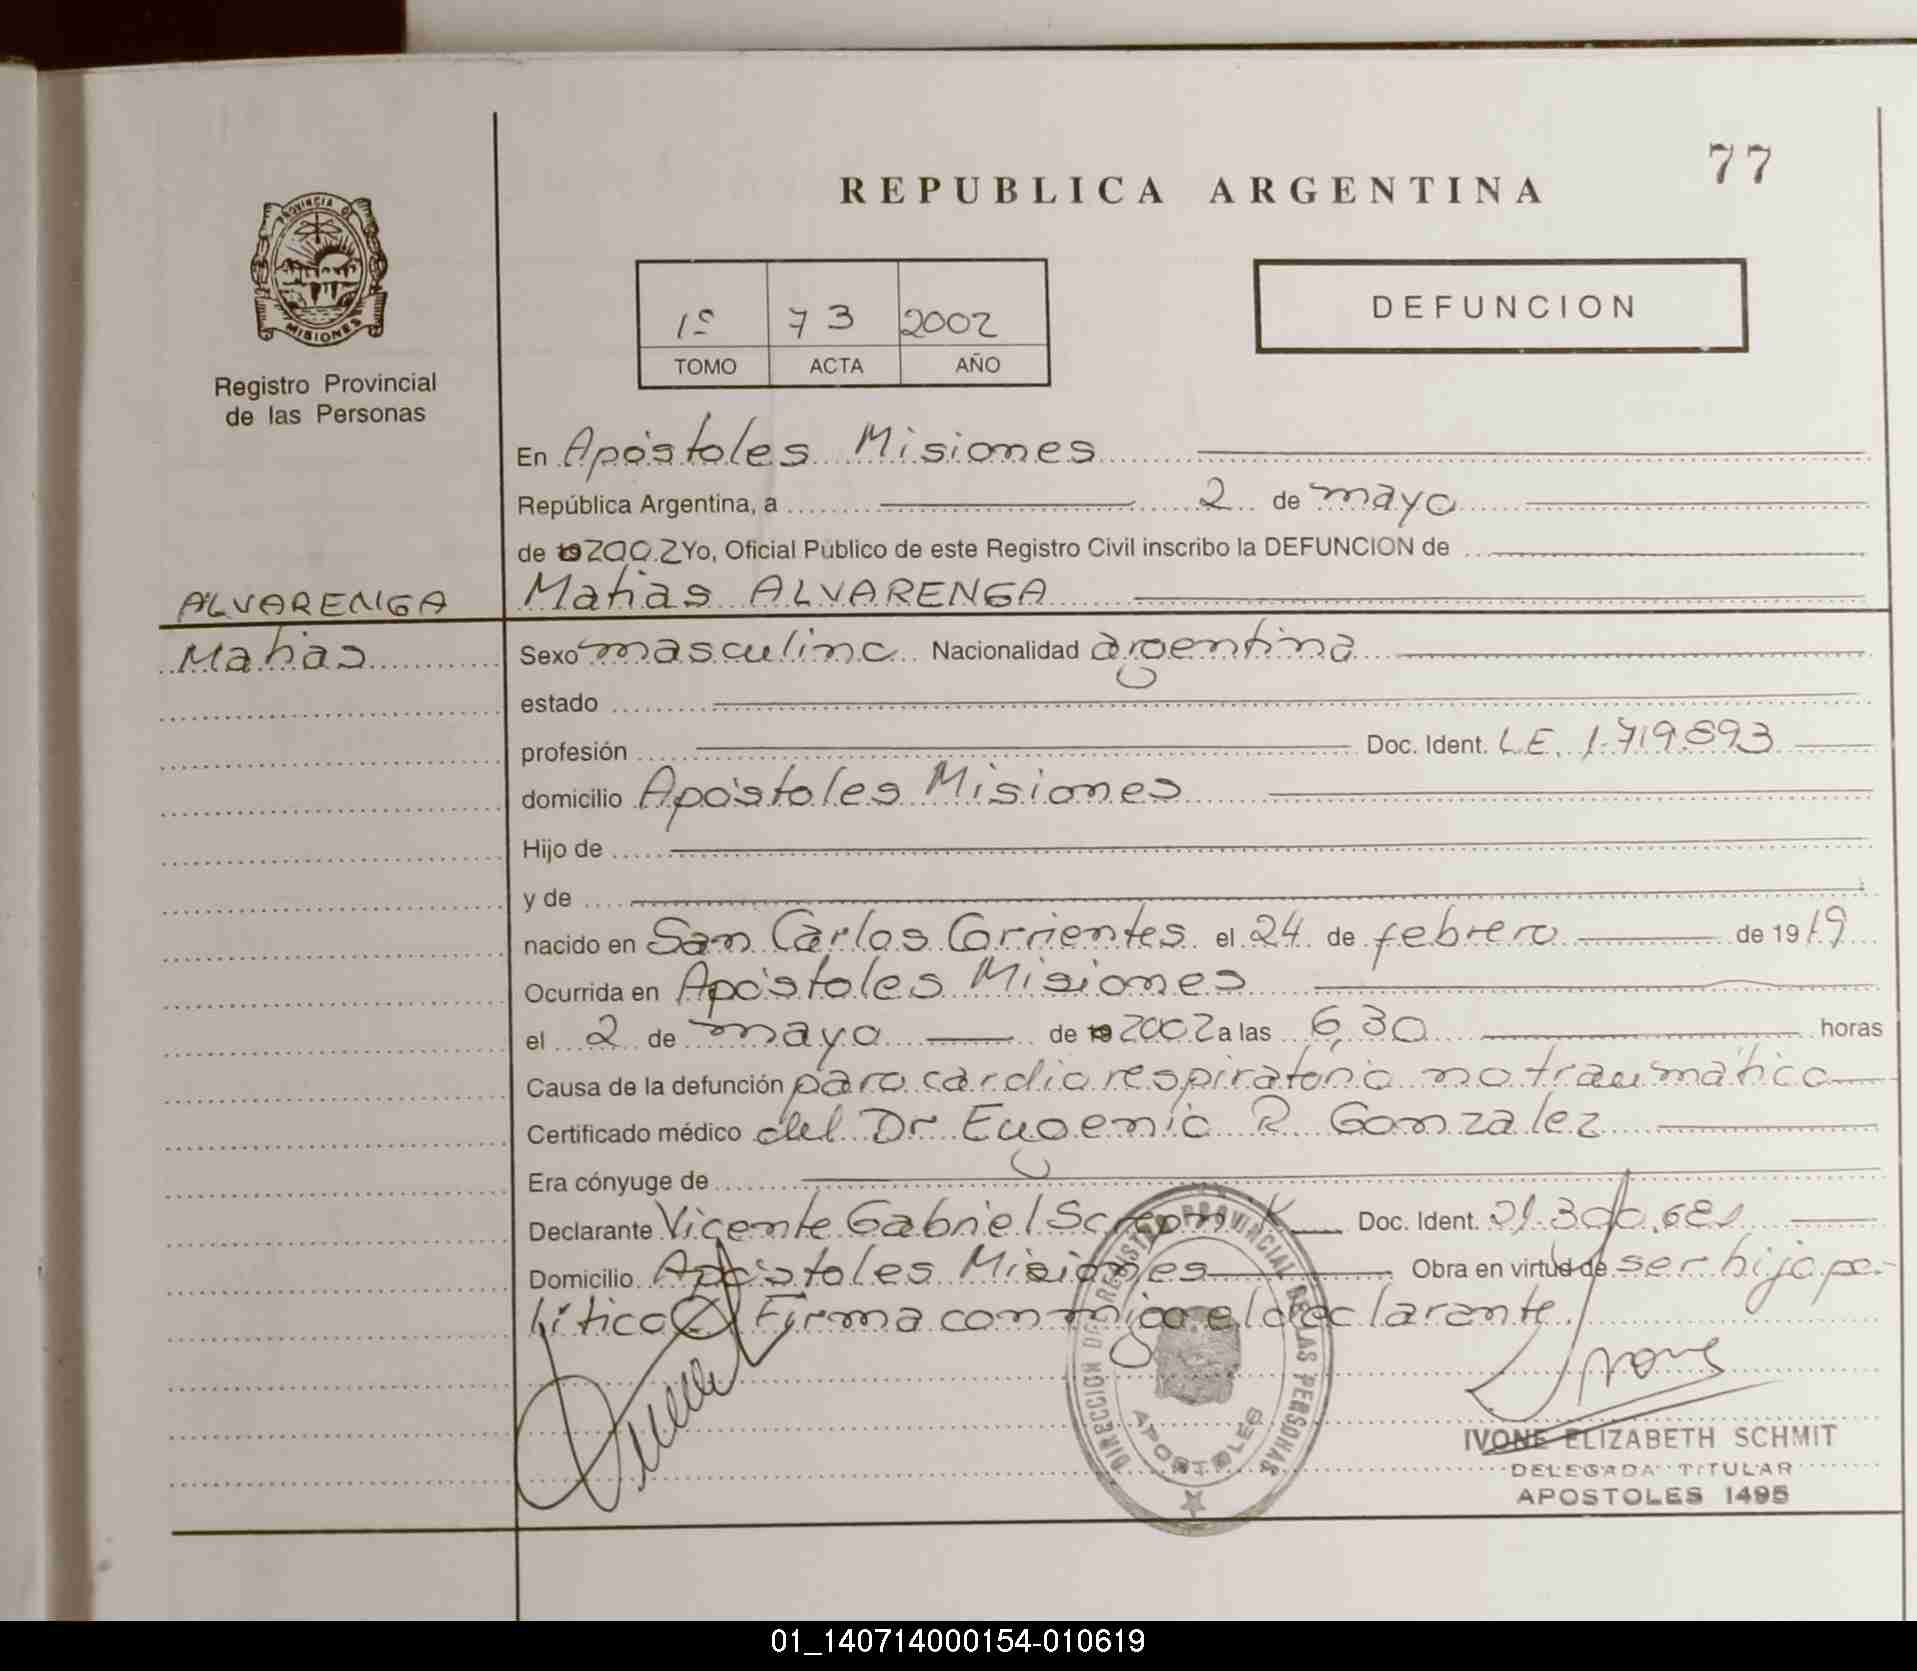 77
REPUBLICA ARGENTINA
PROVINCIA DE
MISIONES
Registro Provincial
de las Personas
1º 73 2002
TOMO ACTA AÑO
DEFUNCION
En Apóstoles Misiones
República Argentina, a 2 de mayo
de 19 2002 Yo, Oficial Público de este Registro Civil inscribo la DEFUNCION de
ALVARENGA
Matias ALVARENGA
Matias
Sexo masculino Nacionalidad argentina
estado
profesión Doc. Ident. L.E. 1.719.893
domicilio Apóstoles Misiones
Hijo de
y de
nacido en San Carlos Corrientes el 24 de febrero de 19 19
Ocurrida en Apóstoles Misiones
el 2 de mayo de 19 2002 a las 6,30 horas
Causa de la defunción paro cardio respiratorio no traumático
Certificado médico del Dr Eugenio R. Gonzalez
Era cónyuge de
Declarante Vicente Gabriel Doc. Ident.
Domicilio Apóstoles Misiones Obra en virtud de ser hijo po-
lítico Firma conmigo el declarante
DIRECCIÓN DE REGISTRO PROVINCIAL DE LAS PERSONAS
APOSTOLES
IVONE ELIZABETH SCHMIT
DELEGADA TITULAR
APOSTOLES 1495
01_140714000154-010619